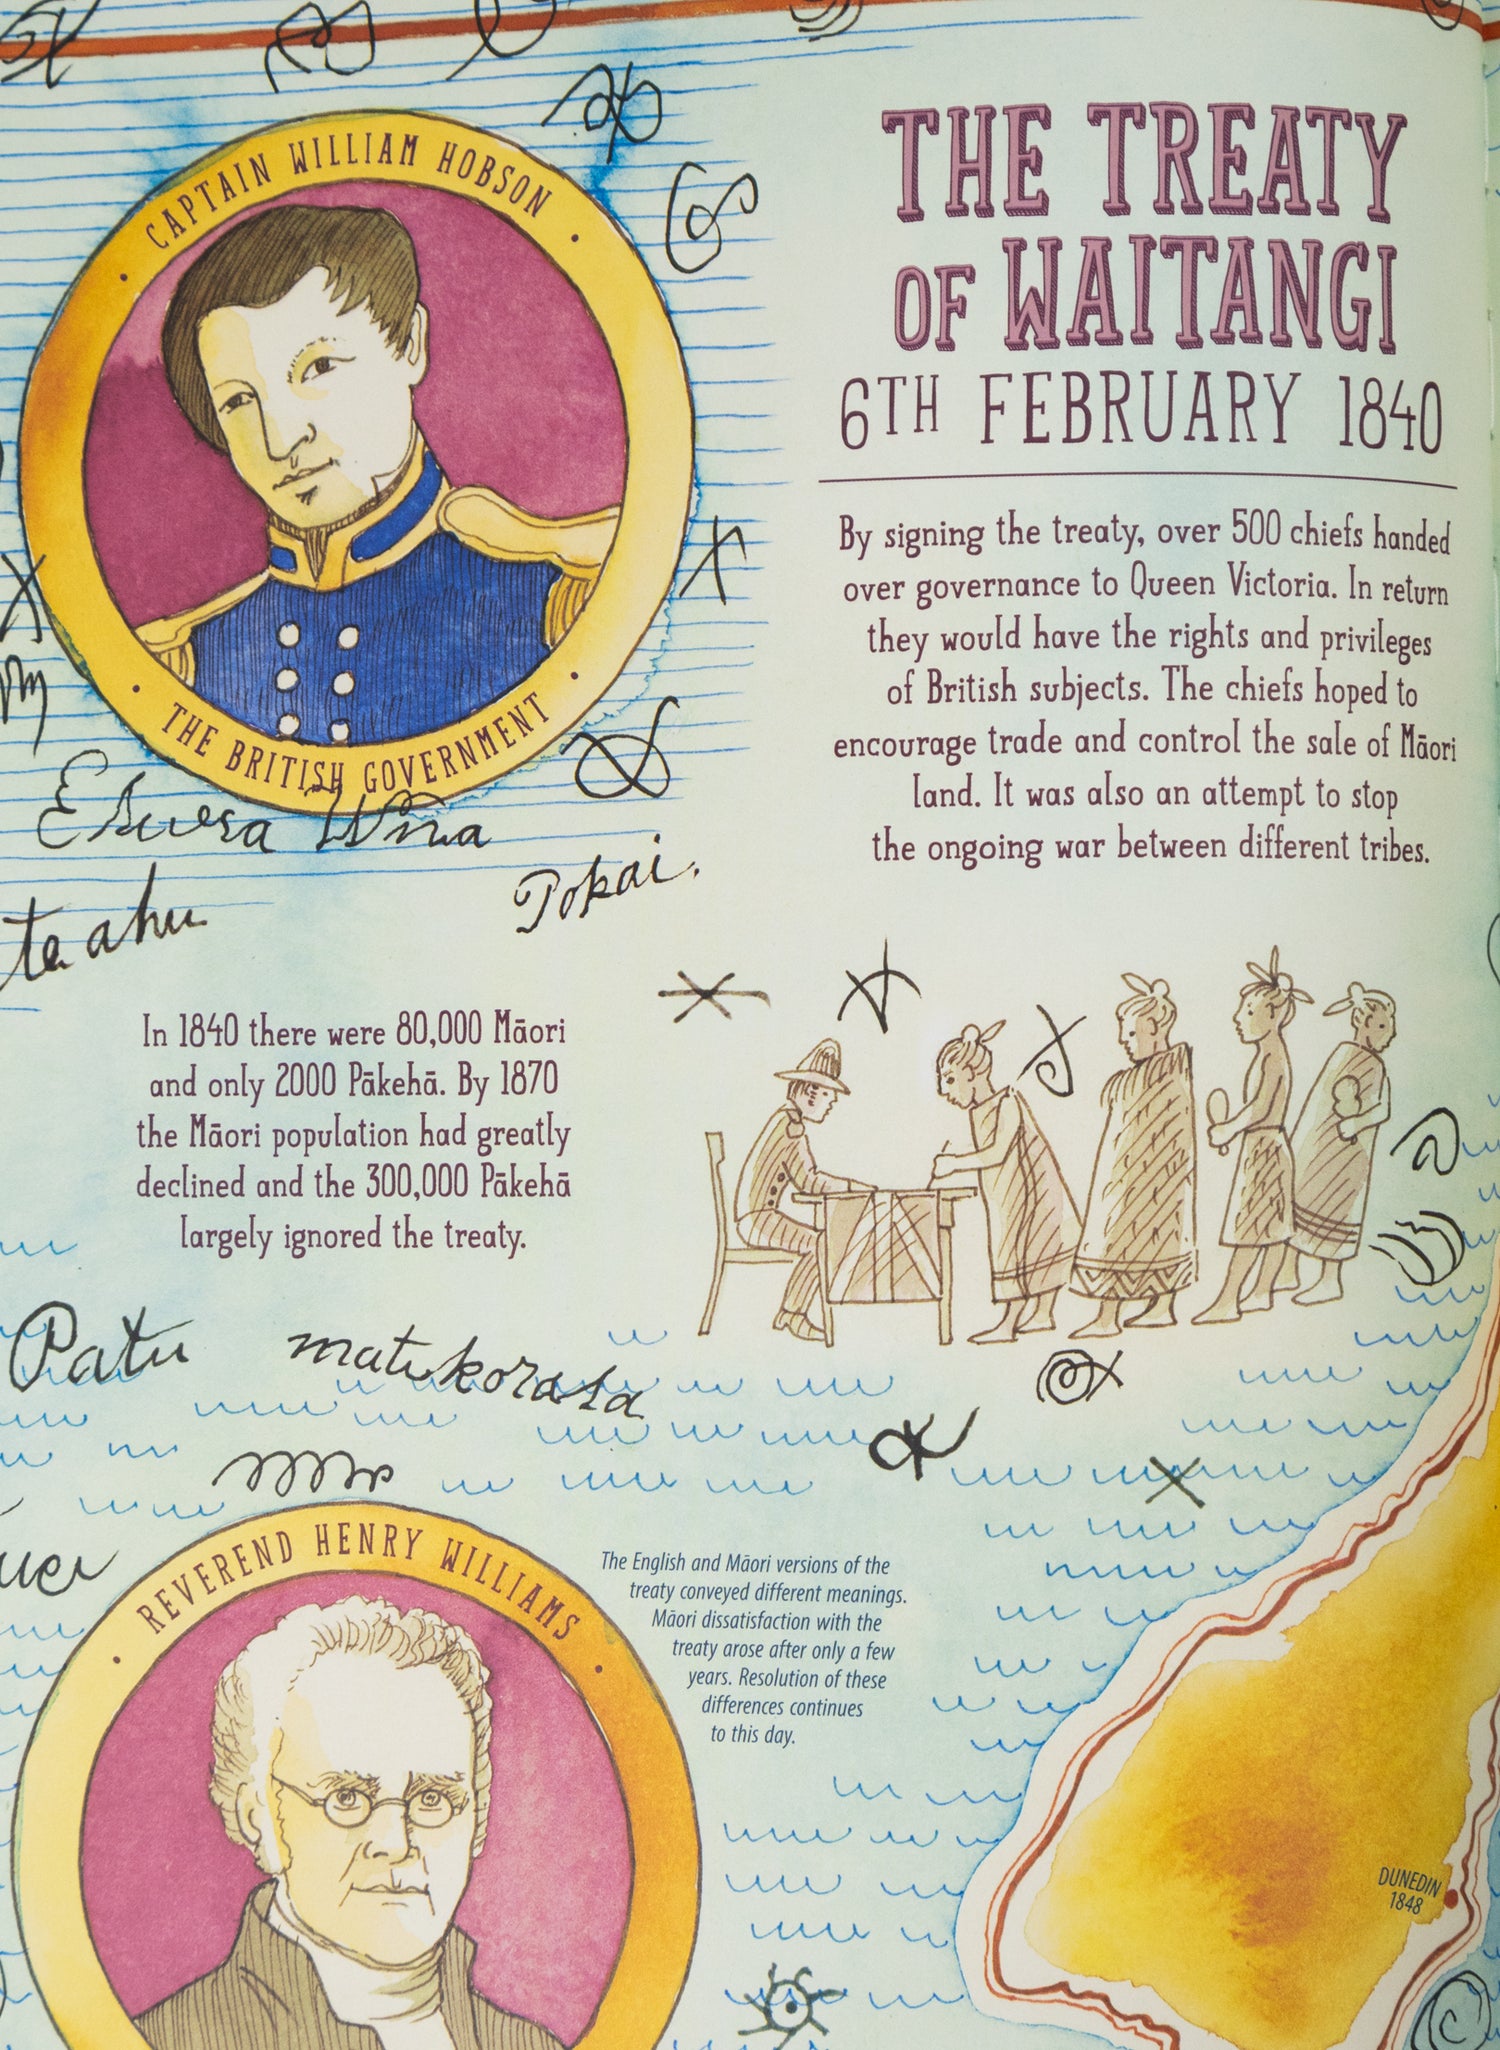 CAPTAIN WILLIAM HOBSON
THE BRITISH GOVERNMENT
THE TREATY
OF WAITANGI
6TH FEBRUARY 1840
By signing the treaty, over 500 chiefs handed
over governance to Queen Victoria. In return
they would have the rights and privileges
of British subjects. The chiefs hoped to
encourage trade and control the sale of Māori
land. It was also an attempt to stop
the ongoing war between different tribes.
te ahu
Pokai.
In 1840 there were 80,000 Māori
and only 2000 Pākehā. By 1870
the Māori population had greatly
declined and the 300,000 Pākehā
largely ignored the treaty.
Patu
REVEREND HENRY WILLIAMS
The English and Māori versions of the
treaty conveyed different meanings.
Māori dissatisfaction with the
treaty arose after only a few
years. Resolution of these
differences continues
to this day.
DUNEDIN
1848